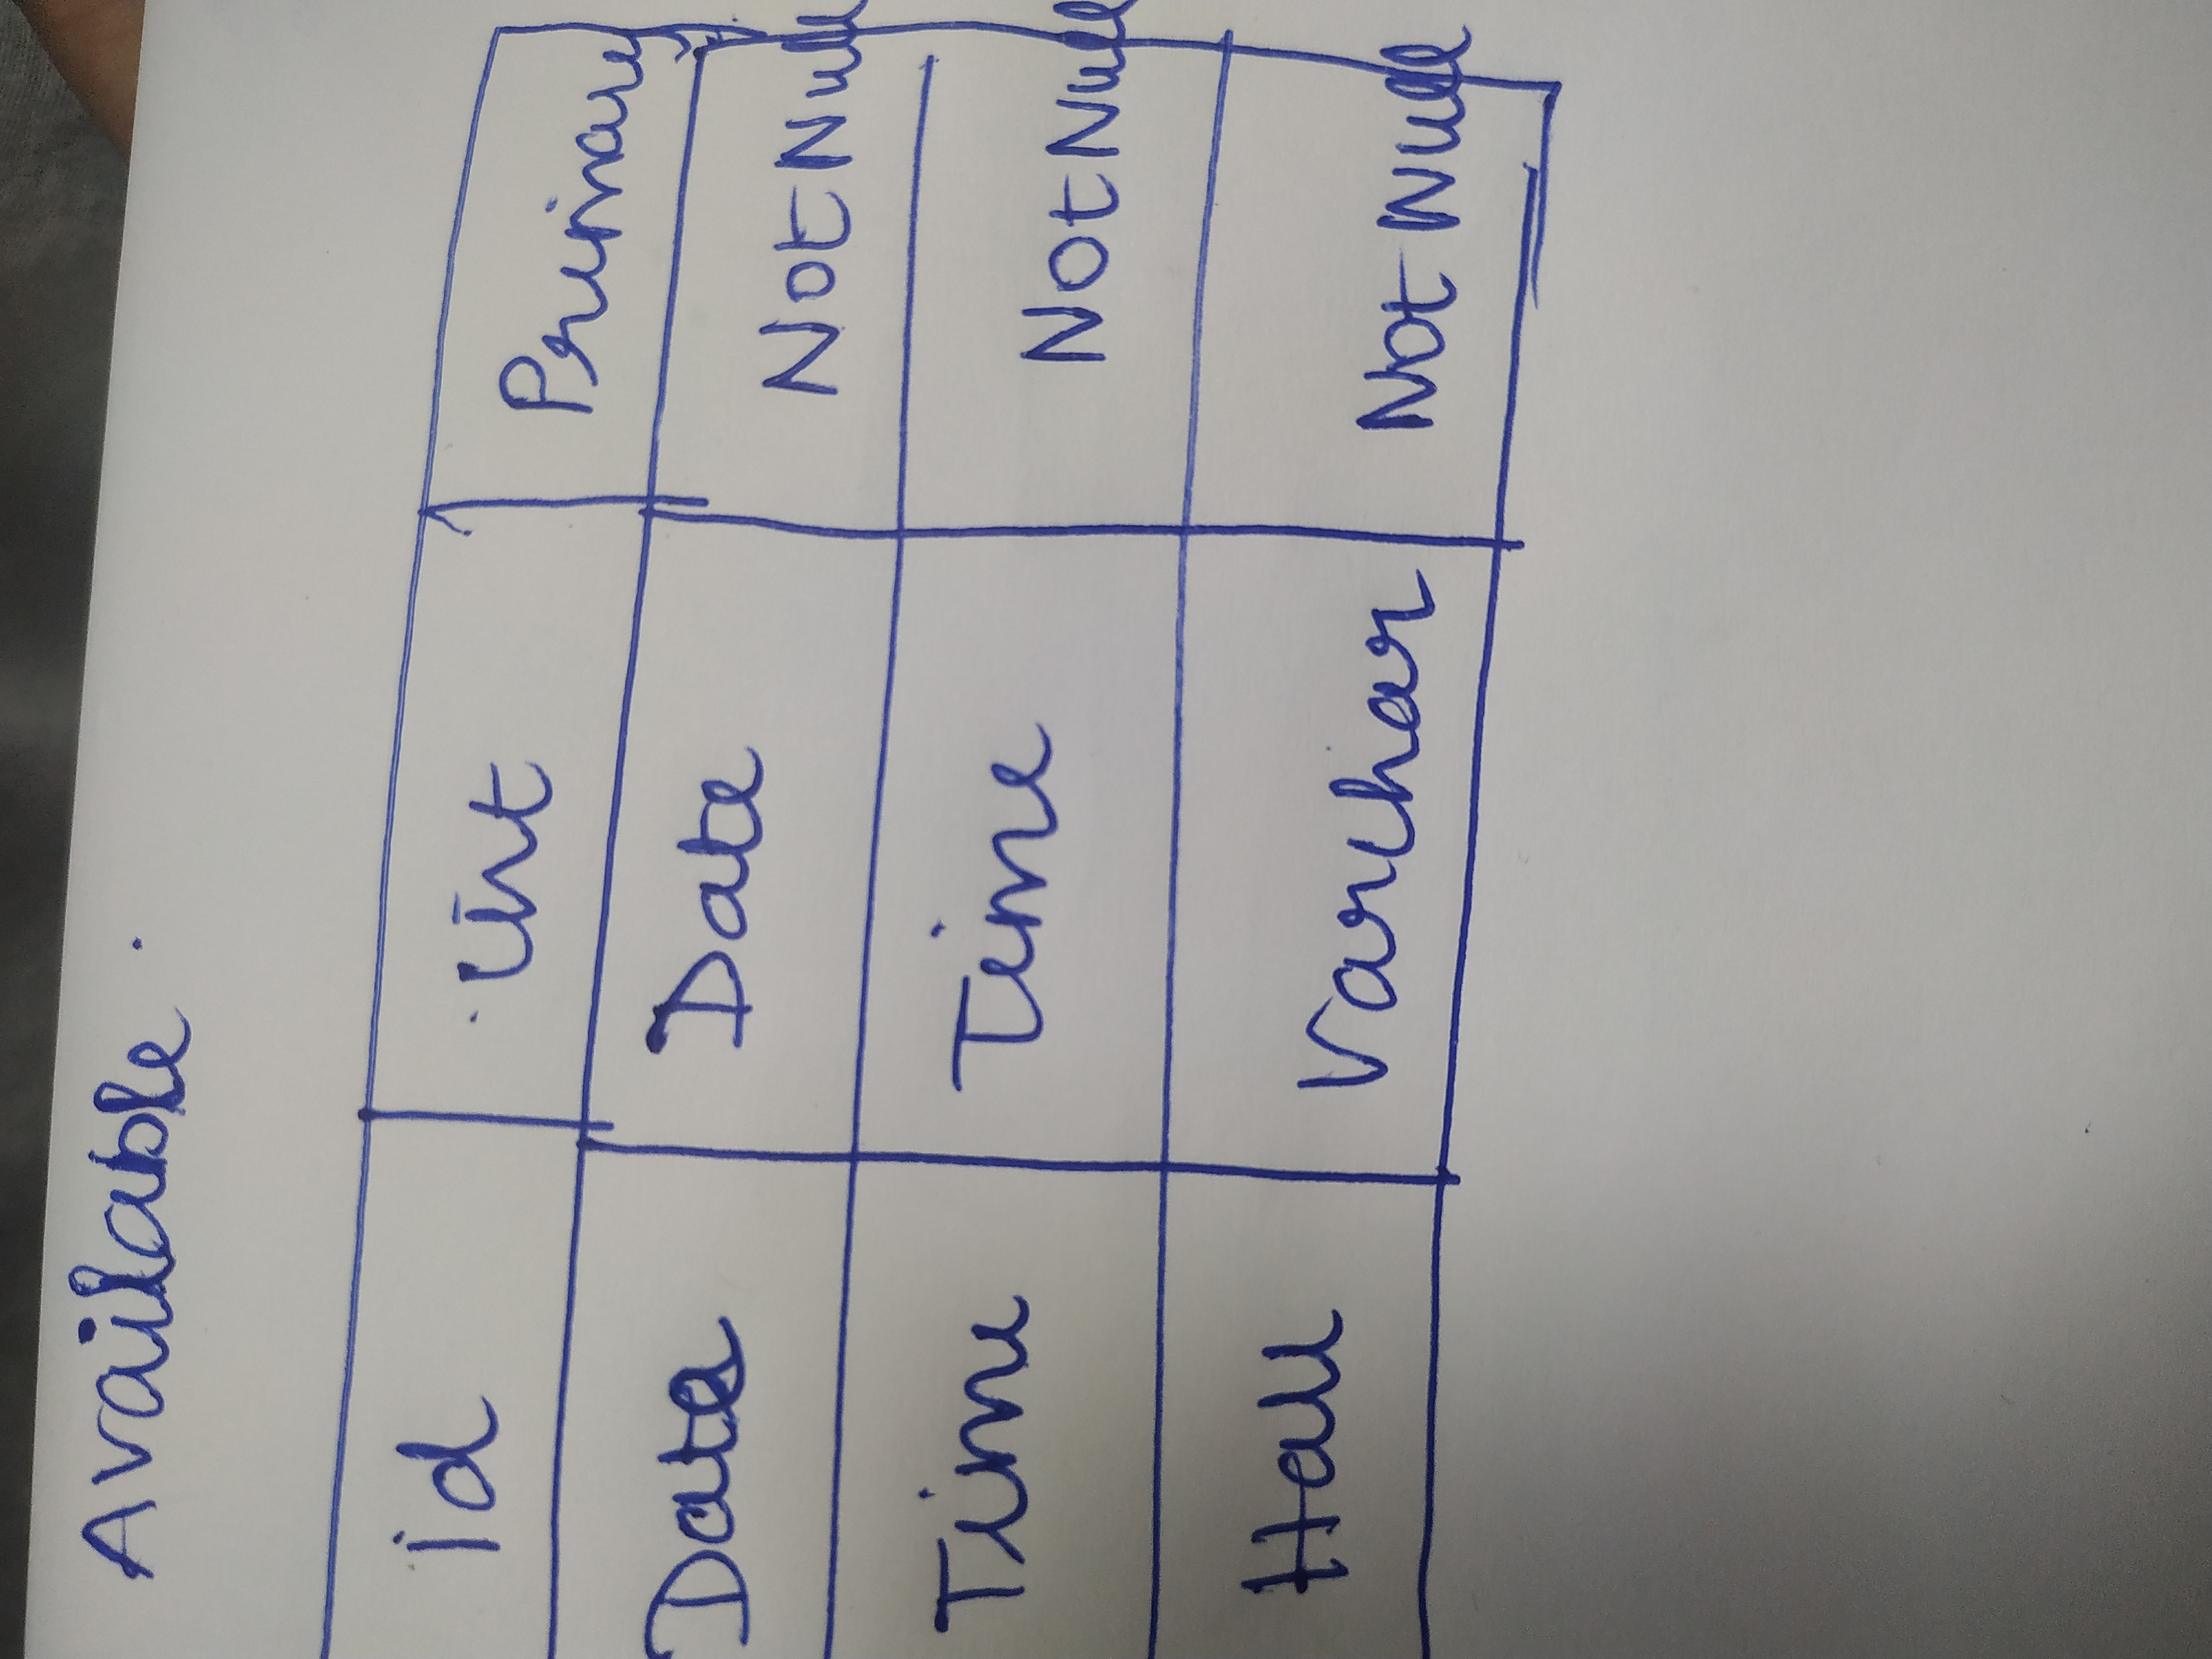 Available
id int Primary
Date Date Not Null
Time Time Not Null
Hall Varchar Not Null